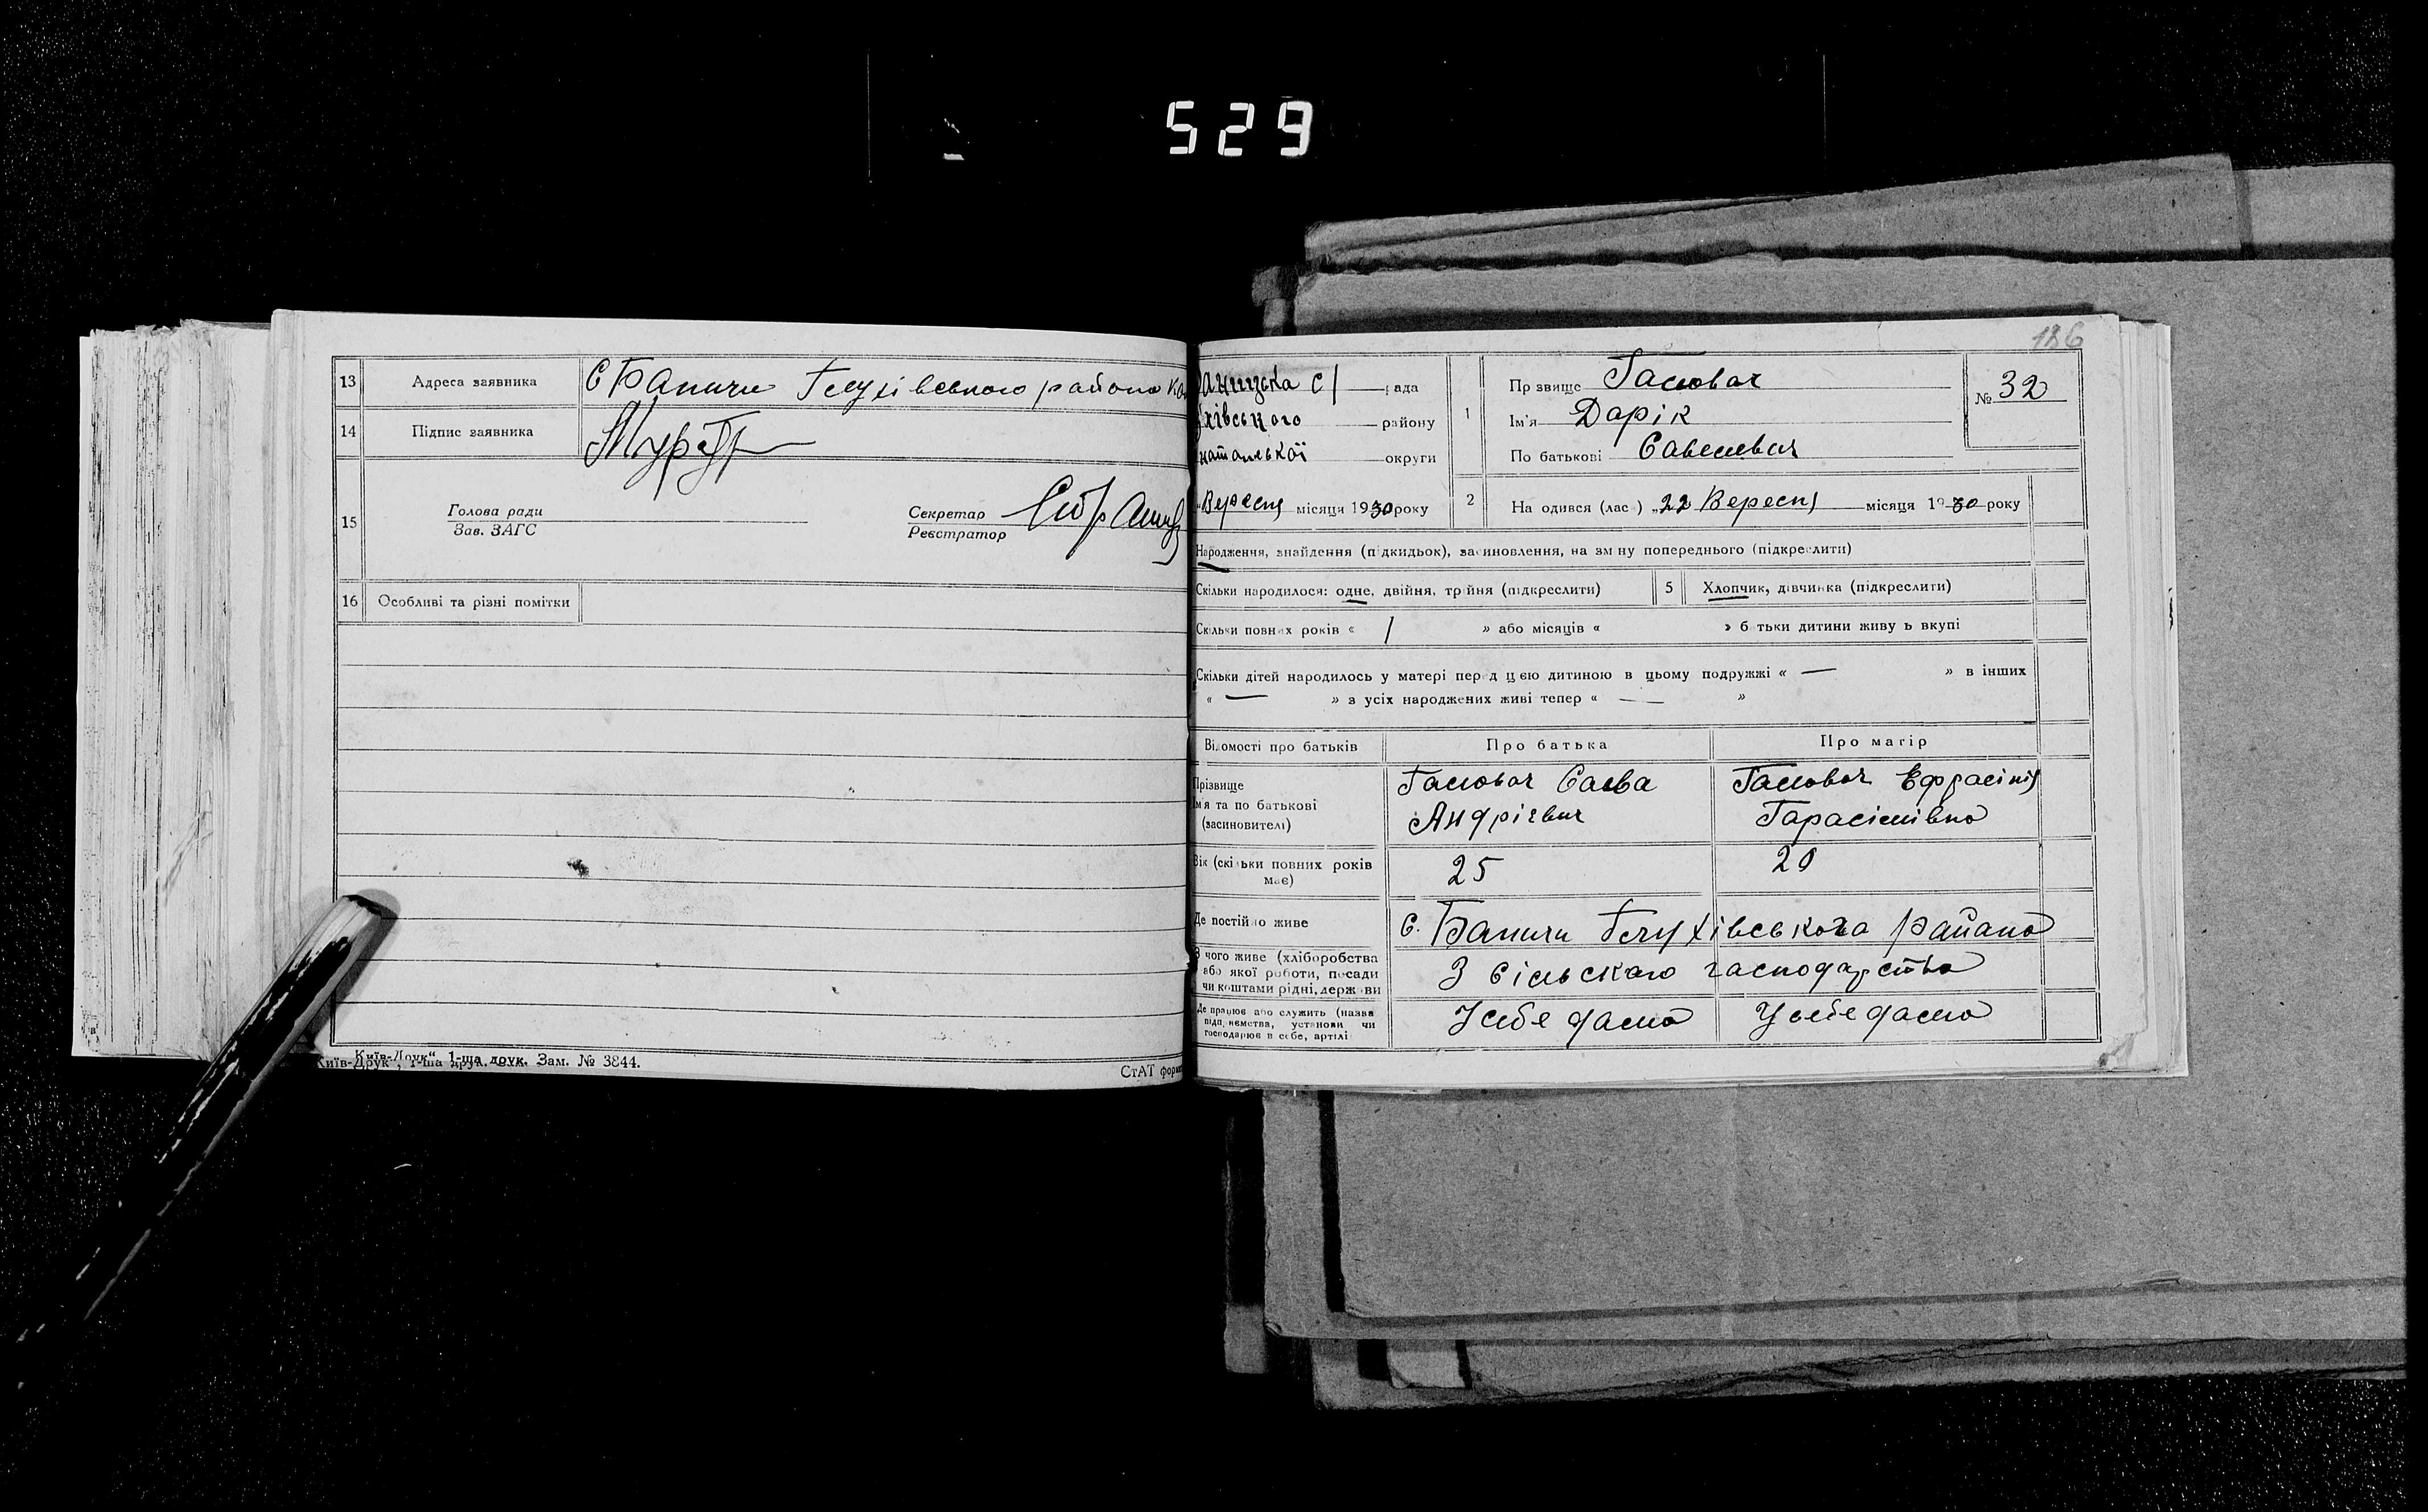 529
186
13 Адреса заявника С Баничи Глухівського района
14 Підпис заявника
15 Голова ради
Зав. ЗАГС
Секретар
Реєстратор
16 Особливі та різні помітки
Київ-Друк", 1-ша друк. Зам. № 3844.
СтАТ форм
аницька с/ рада
хівського району
округи
Вересня місяця 1930 року
1 Пр звище Галовач
Ім'я Дарік
По батькові Савелевич
№ 32
2 На одився (лас ) „22 Вересня місяця 1930 року
Народження, знайдення (підкидьок), засиновлення, на зм ну попереднього (підкреслити)
Скільки народилося: одне, двійня, трійня (підкреслити)
5 Хлопчик, дівчинка (підкреслити)
Скільки повних років « 1 » або місяців « » б тьки дитини живу ь вкупі
Скільки дітей народилось у матері перед цією дитиною в цьому подружжі « — » в інших
« — » з усіх народжених живі тепер « — »
Відомості про батьків Про батька Про матір
Прізвище
Ім'я та по батькові
(засиновителі)
Галовач Савва
Андрієвич
Галовач Ефрасінія
Гарасімівна
Вік (скільки повних років
має)
25
20
Де постійно живе с. Баничи Глухівського района
З чого живе (хліборобства
або якої роботи, посади
чи коштами рідні, держави
З сільского господарства
Де працює або служить (назва
підприємства, установи чи
господарює в себе, артілі
У себе дома
У себе дома